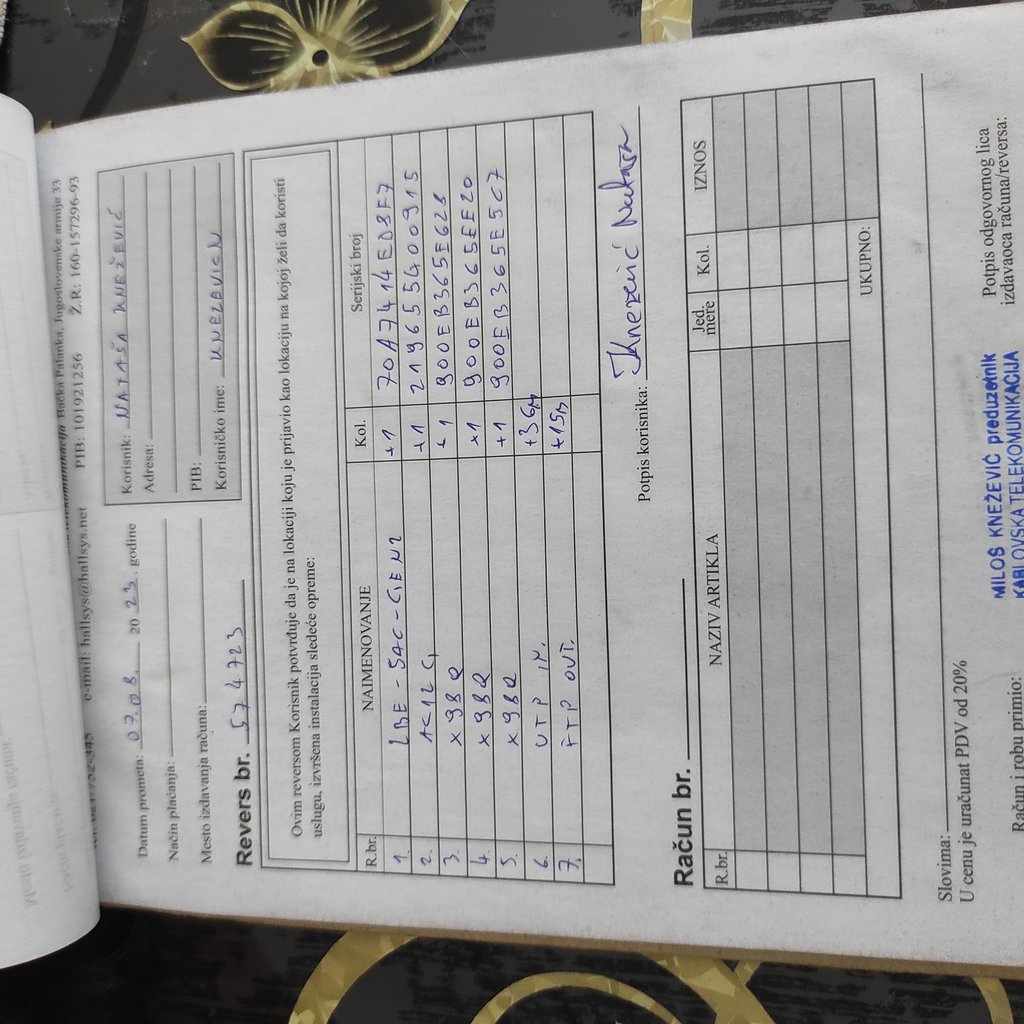 Bačka Palanka, Jugoslovenske armije 33
e-mail: hallsys@hallsys.net PIB: 101921256 Ž.R: 160-157296-93
Datum prometa: 07.08. 2023. godine
Način plaćanja:
Mesto izdavanja računa:
Korisnik: NATAŠA KNEŽEVIĆ
Adresa:
PIB:
Korisničko ime: KNEZEVICN
Revers br. 574723
Ovim reversom Korisnik potvrđuje da je na lokaciji koju je prijavio kao lokaciju na kojoj želi da koristi
uslugu, izvršena instalacija sledeće opreme:
R.br. NAIMENOVANJE Kol. Serijski broj
1. LBE-5AC-GEN2 +1 70A7414ED8F7
2. AC12G +1 2196554000915
3. X98Q +1 900EB365E628
4. X98Q +1 900EB365EE20
5. X98Q +1 900EB365E5C7
6. UTP IN. +36m
7. FTP OUT. +15m
Potpis korisnika: Knežević Nataša
Račun br.
R.br. NAZIV ARTIKLA Jed. mere Kol. IZNOS
UKUPNO:
Slovima:
U cenu je uračunat PDV od 20%
Račun i robu primio:
Potpis odgovornog lica
izdavaoca računa/reversa:
MILOŠ KNEŽEVIĆ preduzetnik
KABLOVSKA TELEKOMUNIKACIJA